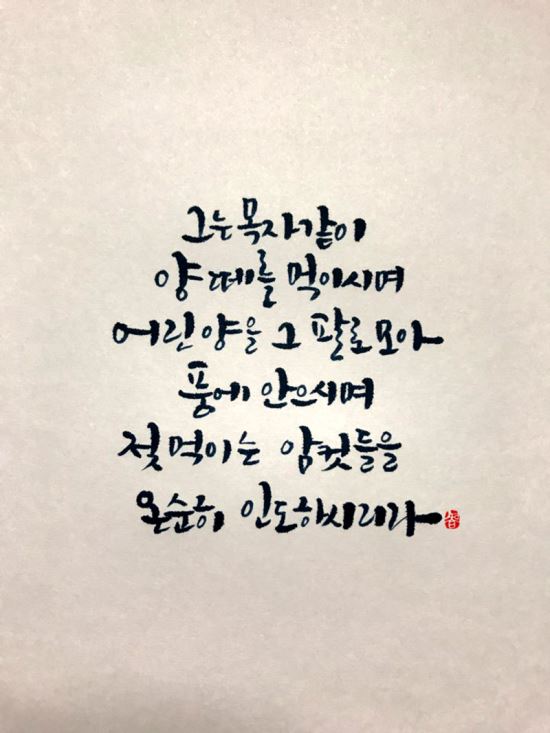 그는 목자같이
양 떼를 먹이시며
어린 양을 그 팔로 모아
품에 안으시며
젖먹이는 암컷들을
온순히 인도하시리라